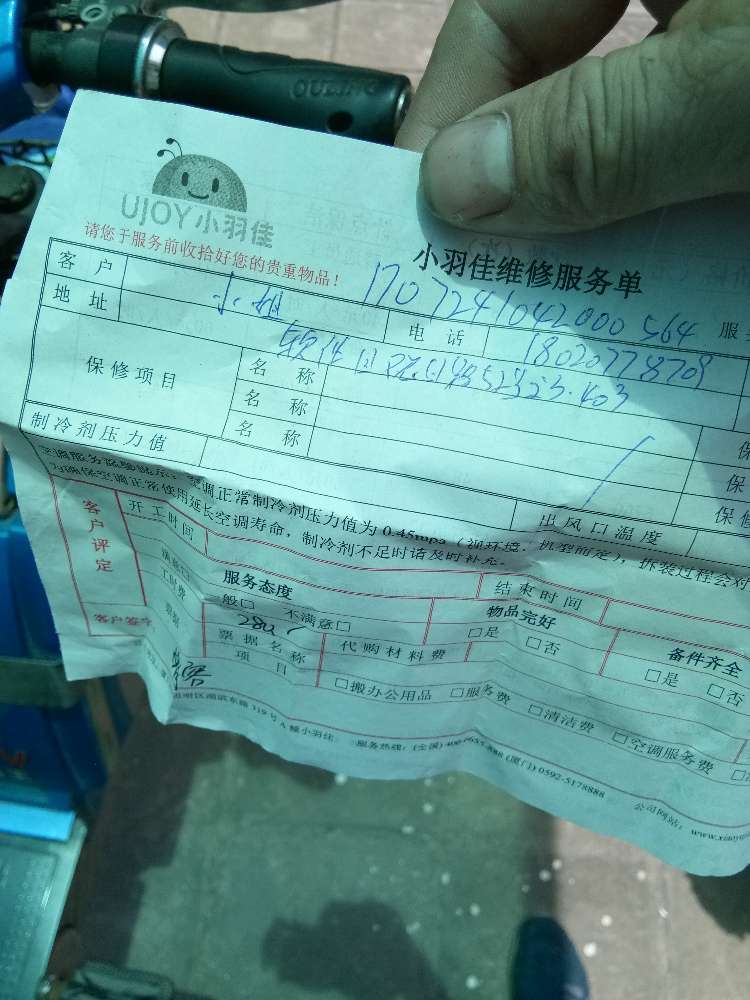 OULING
UJOY小羽佳
请您于服务前收拾好您的贵重物品！
小羽佳维修服务单
客户
小姐
1707241042000564
服
地址
电话
18020778709
保修项目
名称
软件
名称
名称
保
保
保修
制冷剂压力值
出风口温度
空调正常制冷剂压力值为0.45mpa（视环境、机型而定），拆装过程会对
为确保空调正常使用延长空调寿命，制冷剂不足时请及时补充。
客户评定
开工时间
结束时间
服务态度
物品完好
备件齐全
满意□ 一般□ 不满意□
□是 □否
□是 □否
工时费
280
代购材料费
票据
票据名称
项目
□搬办公用品 □服务费 □清洁费 □空调服务费
客户签字
思明区湖滨东路319号A幢小羽佳
服务热线：(全国) (厦门) 0592-5178888
公司网站：